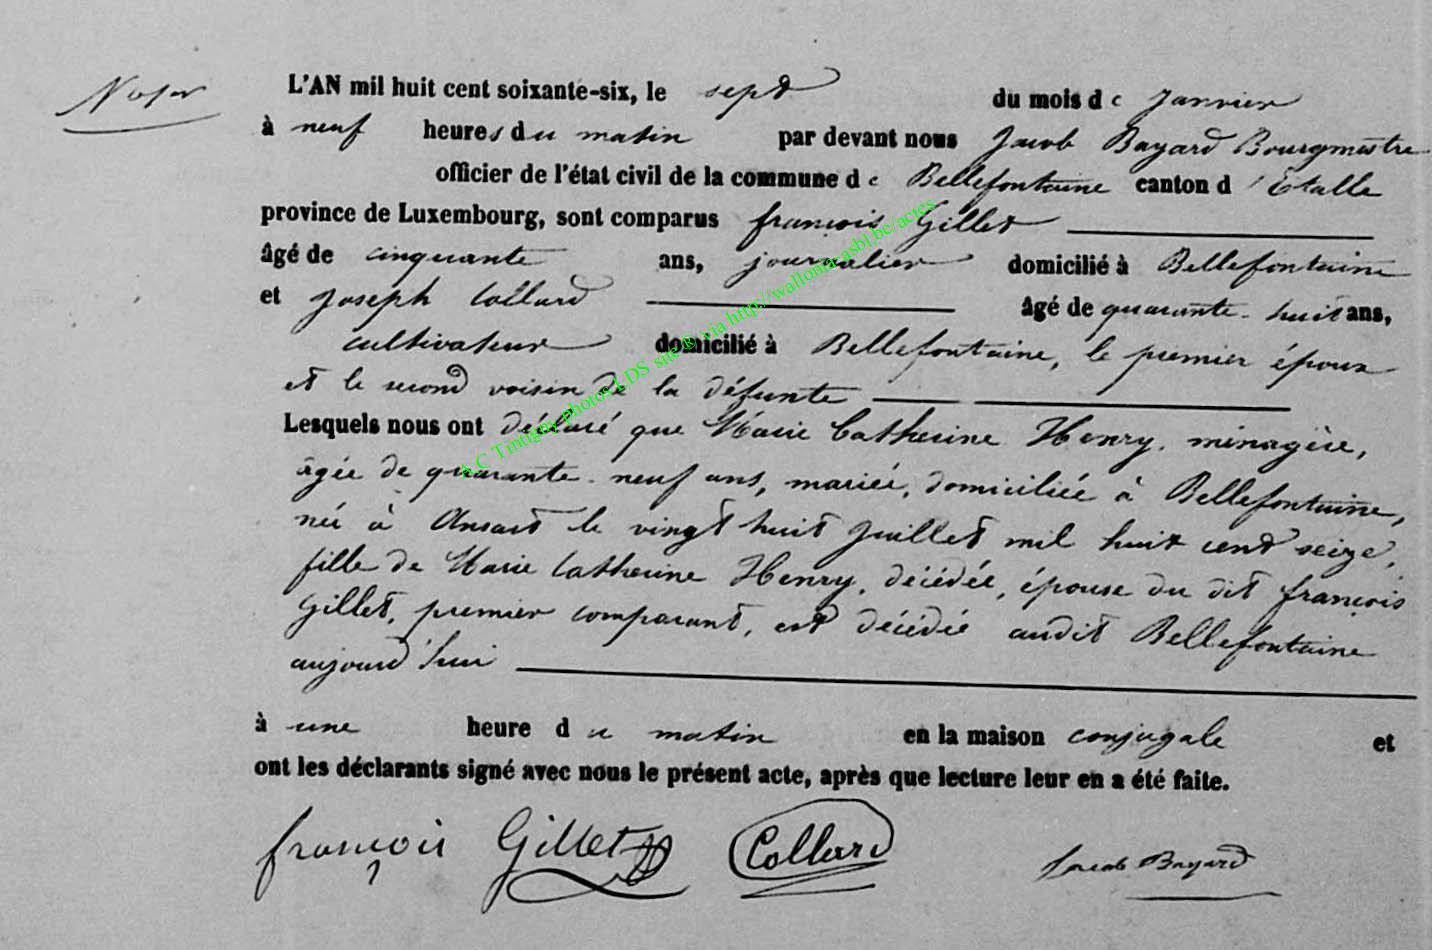 L'AN mil huit cent soixante-six, le sept du mois de Janvier
à neuf heures du matin par devant nous Jacob Bayard Bourgmestre
officier de l'état civil de la commune de Bellefontaine canton d'Etalle
province de Luxembourg, sont comparus françois Gillet
âgé de cinquante ans, journalier domicilié à Bellefontaine
et Joseph Collard âgé de quarante-huit ans,
cultivateur domicilié à Bellefontaine, le premier époux
et le second voisin de la défunte
Lesquels nous ont déclaré que Marie Catherine Henry, ménagère,
âgée de quarante-neuf ans, mariée, domiciliée à Bellefontaine,
née à Ansart le vingt huit Juillet mil huit cent seize,
fille de Marie Catherine Henry, décédée, épouse du dit françois
Gillet, premier comparant, est décédée audit Bellefontaine
aujourd'hui
à une heure du matin en la maison conjugale et
ont les déclarants signé avec nous le présent acte, après que lecture leur en a été faite.
françois Gillet Collard Jacob Bayard
A.C Tintigny photos LDS site ® via http://wallonia.asbl.be/actes